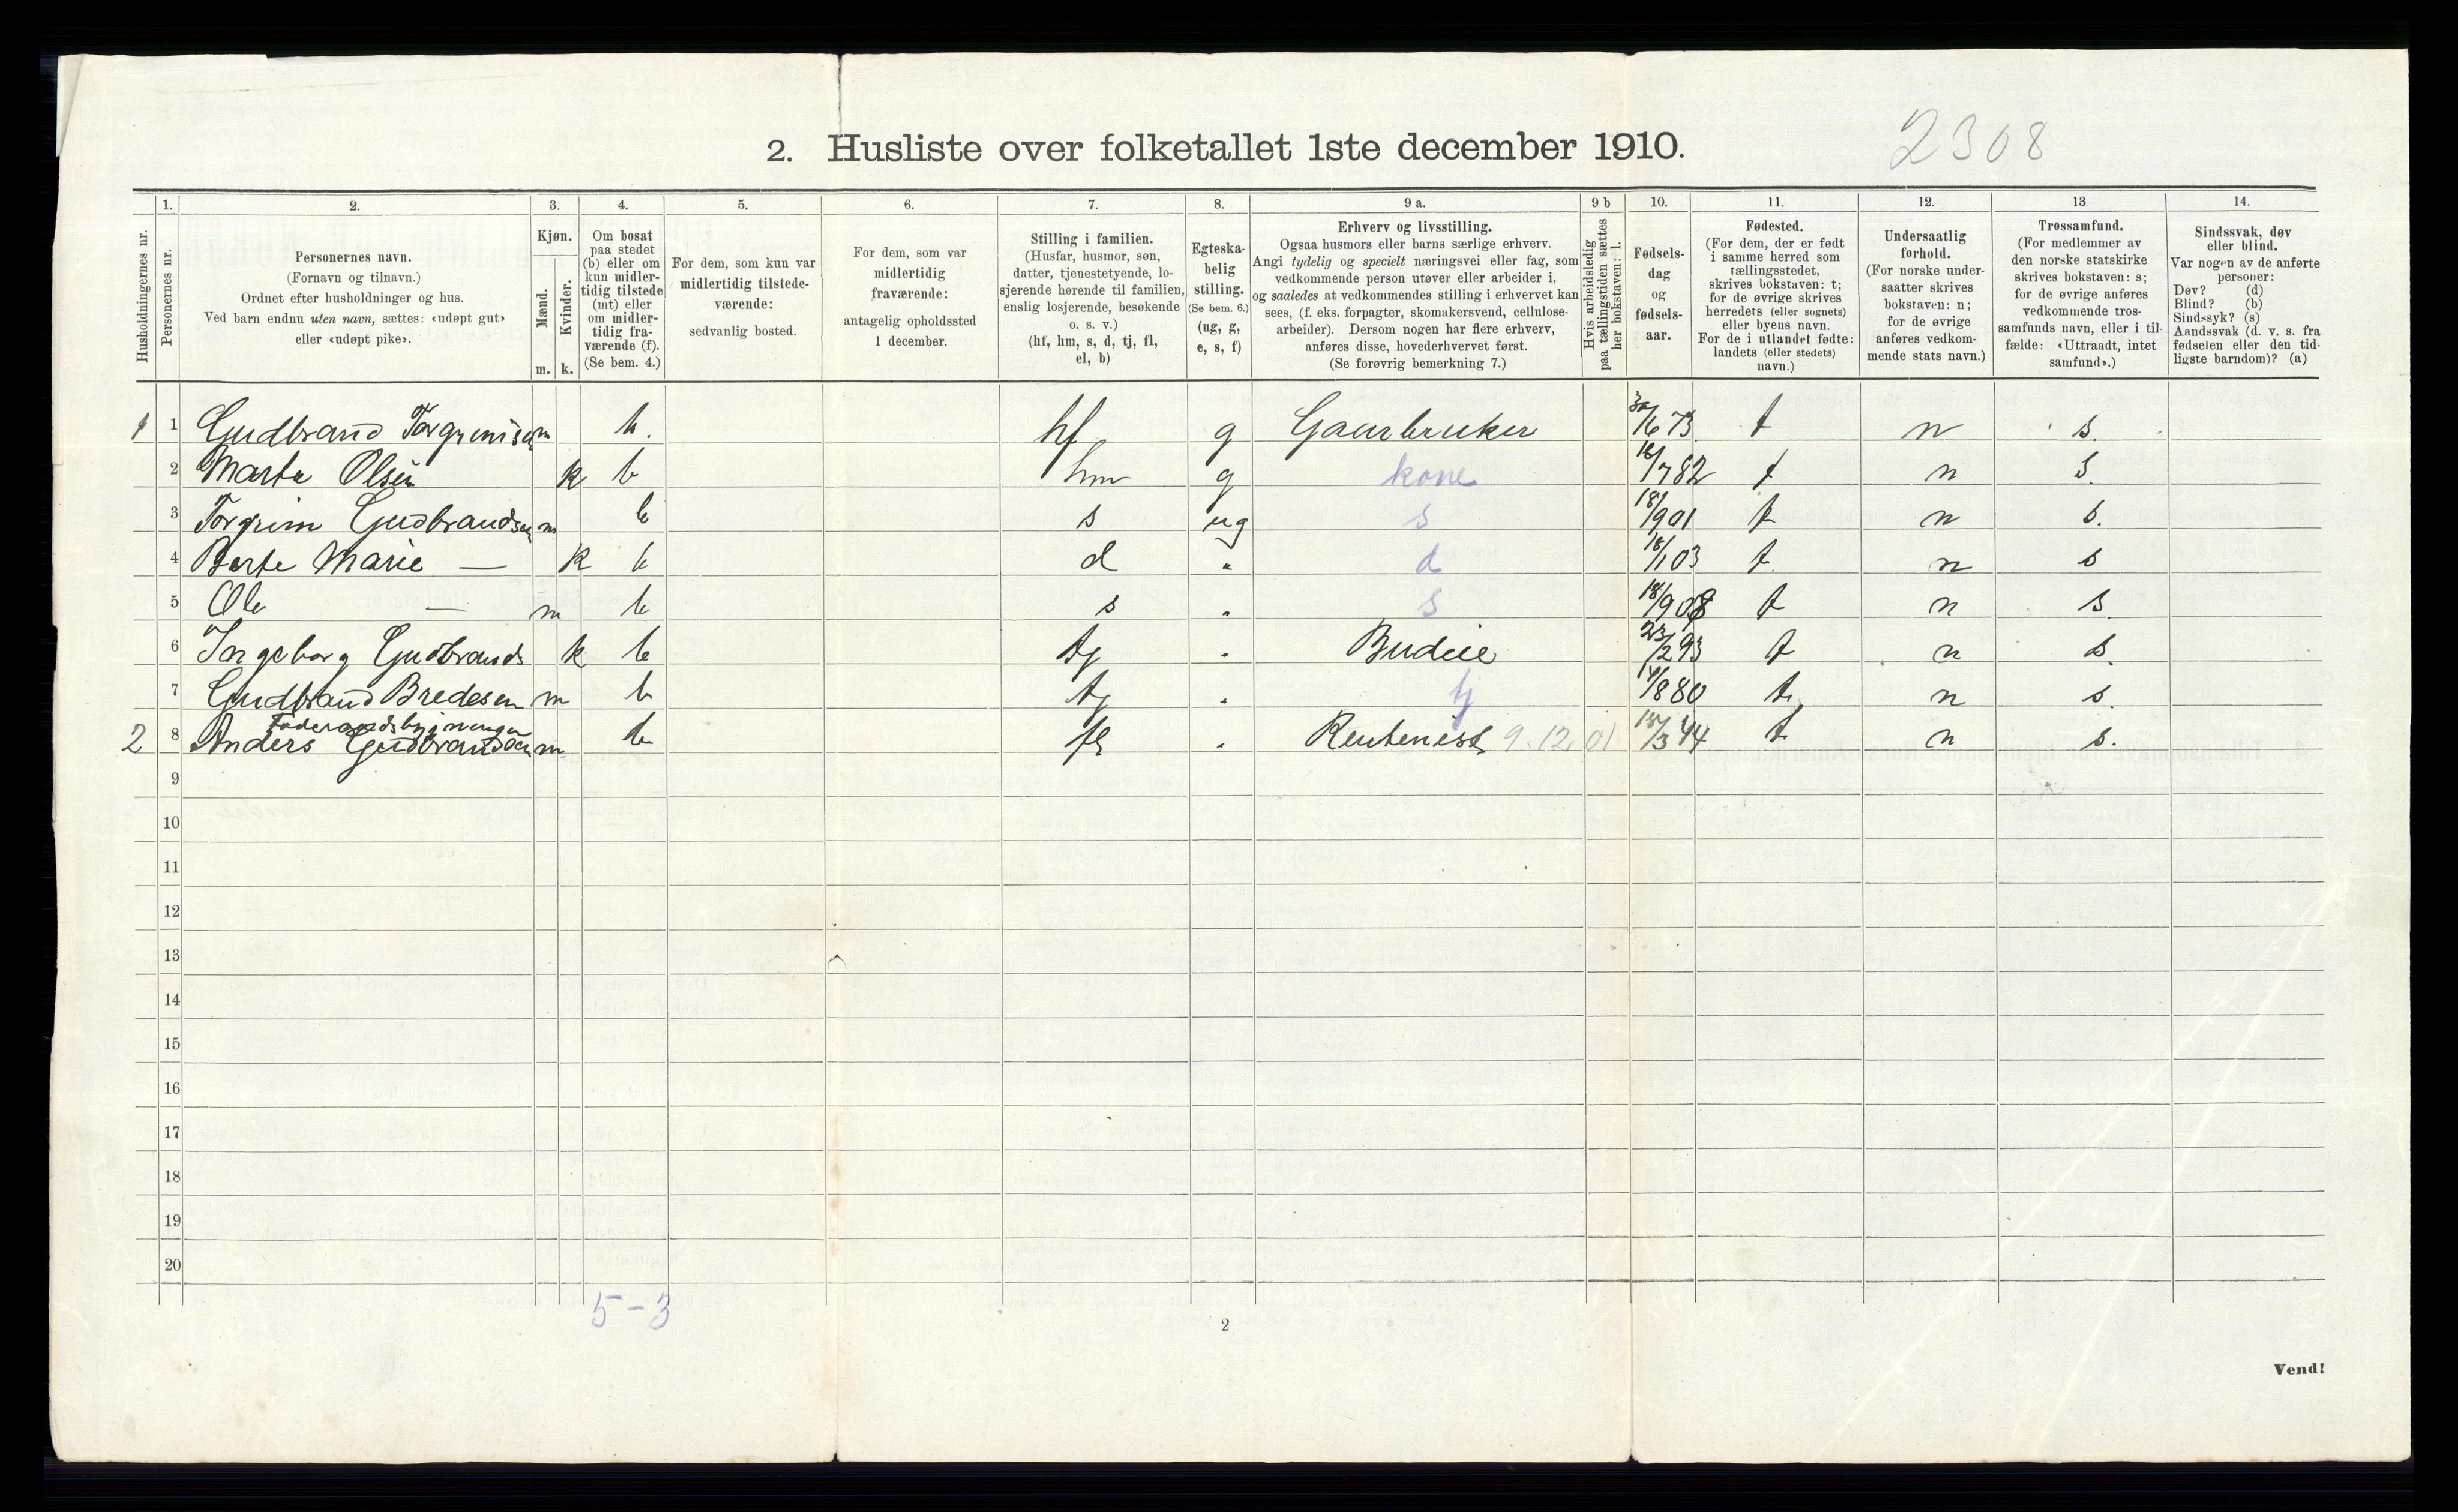 2. Husliste over folketallet 1ste december 1910.
2308
1. 2. 3. 4. 5. 6. 7. 8. 9 a. 9 b 10. 11. 12. 13. 14.
Husholdningernes nr.
Personernes nr.
Personernes navn.
(Fornavn og tilnavn.)
Ordnet efter husholdninger og hus.
Ved barn endnu uten navn, sættes: «udøpt gut»
eller «udøpt pike».
Kjøn.
Mænd.
Kvinder.
m. k.
Om bosat
paa stedet
(b) eller om
kun midler-
tidig tilstede
(mt) eller
om midler-
tidig fra-
værende (f).
(Se bem. 4.)
For dem, som kun var
midlertidig tilstede-
værende:
sedvanlig bosted.
For dem, som var
midlertidig
fraværende:
antagelig opholdssted
1 december.
Stilling i familien.
(Husfar, husmor, søn,
datter, tjenestetyende, lo-
sjerende hørende til familien,
enslig losjerende, besøkende
o. s. v.)
(hf, hm, s, d, tj, fl,
el, b)
Egteska-
belig
stilling.
(Se bem. 6.)
(ug, g,
e, s, f)
Erhverv og livsstilling.
Ogsaa husmors eller barns særlige erhverv.
Angi tydelig og specielt næringsvei eller fag, som
vedkommende person utøver eller arbeider i,
og saaledes at vedkommendes stilling i erhvervet kan
sees, (f. eks. forpagter, skomakersvend, cellulose-
arbeider). Dersom nogen har flere erhverv,
anføres disse, hovederhvervet først.
(Se forøvrig bemerkning 7.)
Hvis arbeidsledig
paa tællingstiden sættes
her bokstaven: l.
Fødsels-
dag
og
fødsels-
aar.
Fødested.
(For dem, der er født
i samme herred som
tællingsstedet,
skrives bokstaven: t;
for de øvrige skrives
herredets (eller sognets)
eller byens navn.
For de i utlandet fødte:
landets (eller stedets)
navn.)
Undersaatlig
forhold.
(For norske under-
saatter skrives
bokstaven: n;
for de øvrige
anføres vedkom-
mende stats navn.)
Trossamfund.
(For medlemmer av
den norske statskirke
skrives bokstaven: s;
for de øvrige anføres
vedkommende tros-
samfunds navn, eller i til-
fælde: «Uttraadt, intet
samfund».)
Sindssvak, døv
eller blind.
Var nogen av de anførte
personer:
Døv? (d)
Blind? (b)
Sindssyk? (s)
Aandssvak (d. v. s. fra
fødselen eller den tid-
ligste barndom)? (a)
1 1 Gudbrand Torgrimsen m b. hf g Gaardbruker 30/6 73 t n s.
2 Marte Olsen k b hm g kone 16/7 82 t n s.
3 Torgrim Gudbrandsen m b s ug s 18/9 01 t n s.
4 Berte Marie — k b d " d 18/1 03 t n s
5 Ole — m b s " s 18/9 08 t n s.
6 Ingeborg Gudbrands k b tj " Budeie 23/2 93 t n s.
7 Gudbrand Bredesen m b tj " tj 14/8 80 t n s.
Føderaadsbygningen
2 8 Anders Gudbrandsen m b fl " Rentenist 9.12.01 15/3 44 t n s.
9
10
11
12
13
14
15
16
17
18
19
20
5-3
2
Vend!